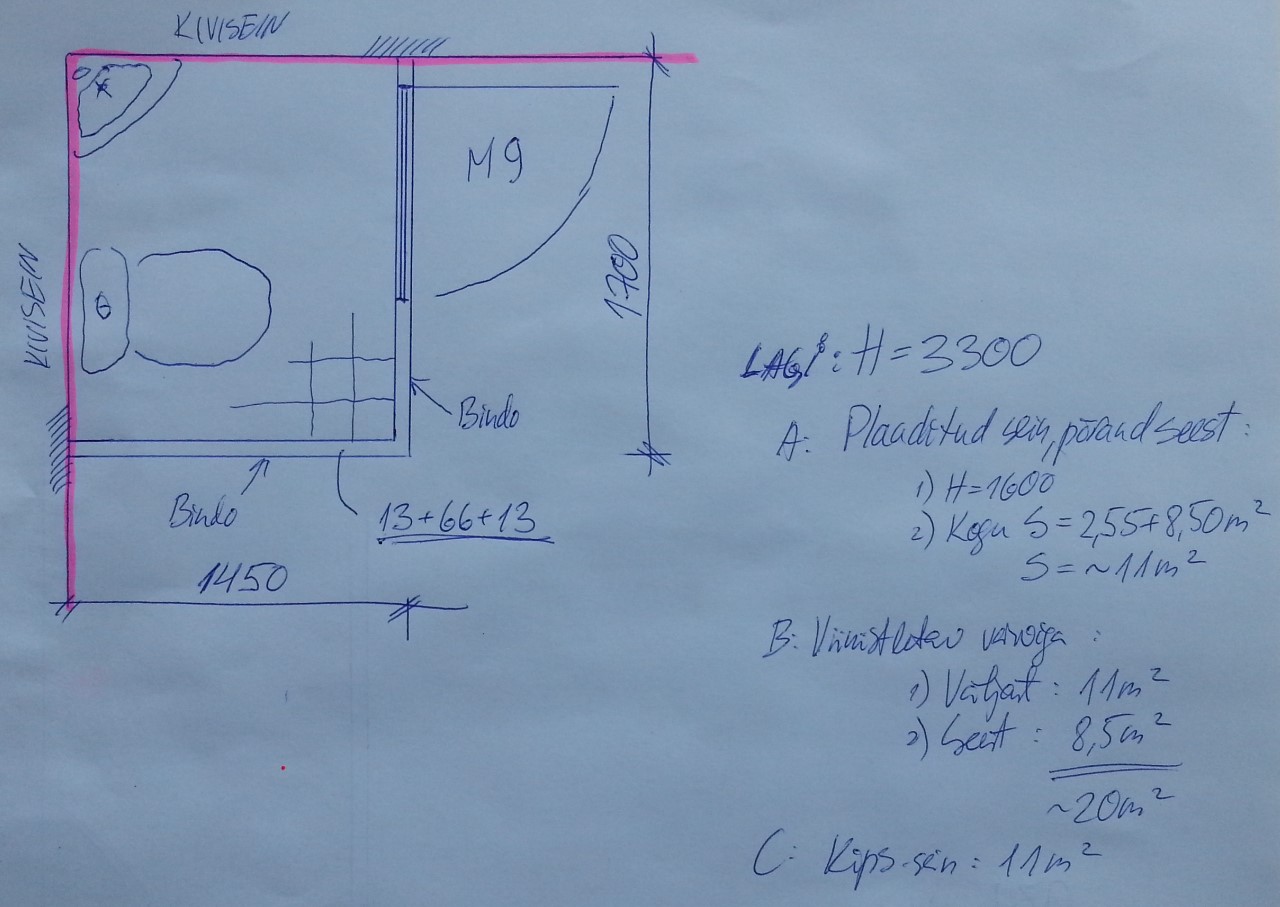 KIVISEIN
K
M9
KIVISEIN
1700
Bindo
Bindo
13+66+13
1450
LAGI: H=3300
A: Plaaditud sein, põrand seest:
1) H=1600
2) Kogu S=2,55+8,50m²
S=~11m²
B: Viimistletav värviga:
1) Väljast: 11m²
2) Seest: 8,5m²
~20m²
C: Kips-sein: 11m²